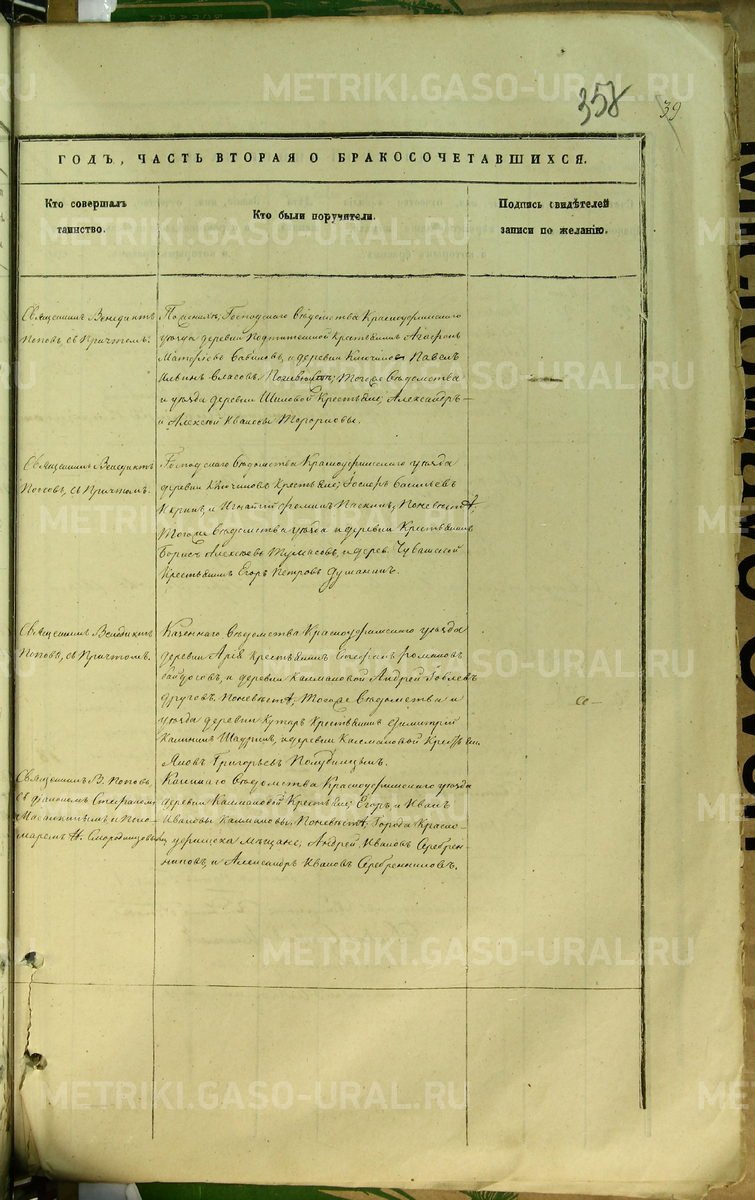 METRIKI.GASO-URAL.RU
358
39
ГОДЪ, ЧАСТЬ ВТОРАЯ О БРАКОСОЧЕТАВШИХСЯ.
Кто совершалъ
таинство.
Кто были поручители.
Подпись свидѣтелей
записи по желанію.
Священникъ Венедиктъ
Поповъ, съ Причтомъ.
По женихѣ, Господскаго Вѣдомства Красноуфимскаго
уѣзда деревни Крестьянинъ Агафонъ
Савиновъ, и деревни Павелъ
Ильинъ Власовъ. По невѣстѣ; Тогоже Вѣдомства
и уѣзда деревни Шиловой Крестьяне; Александръ
и Алексѣй Ивановы
Священникъ Венедиктъ
Поповъ, съ Причтомъ.
Господскаго Вѣдомства Красноуфимскаго уѣзда
деревни Крестьяне; Васильевъ
и Игнатій По невѣстѣ,
Тогоже Вѣдомства уѣзда и деревни Крестьянинъ
Борисъ Алексѣевъ и дерев. Чувашской
Крестьянинъ Егоръ Петровъ
Священникъ Венедиктъ
Поповъ, съ Причтомъ.
Казеннаго Вѣдомства Красноуфимскаго уѣзда
деревни Крестьянинъ Романовъ
и деревни Калмаковой Андрей
Друговъ. По невѣстѣ, Тогоже Вѣдомства и
уѣзда деревни Крестьянинъ Димитрій
Калининъ и деревни Калмаковой
Яковъ Григорьевъ
Священникъ В. Поповъ,
съ Діакономъ Стефаномъ
и Поно-
маремъ Н.
Казеннаго Вѣдомства Красноуфимскаго уѣзда
деревни Калмаковой Крестьяне; Егоръ и Иванъ
Ивановы Калмаковы, По невѣстѣ; Города Красно-
уфимска Мѣщане, Андрей Ивановъ Серебрен-
никовъ, и Александръ Ивановъ Серебренниковъ.